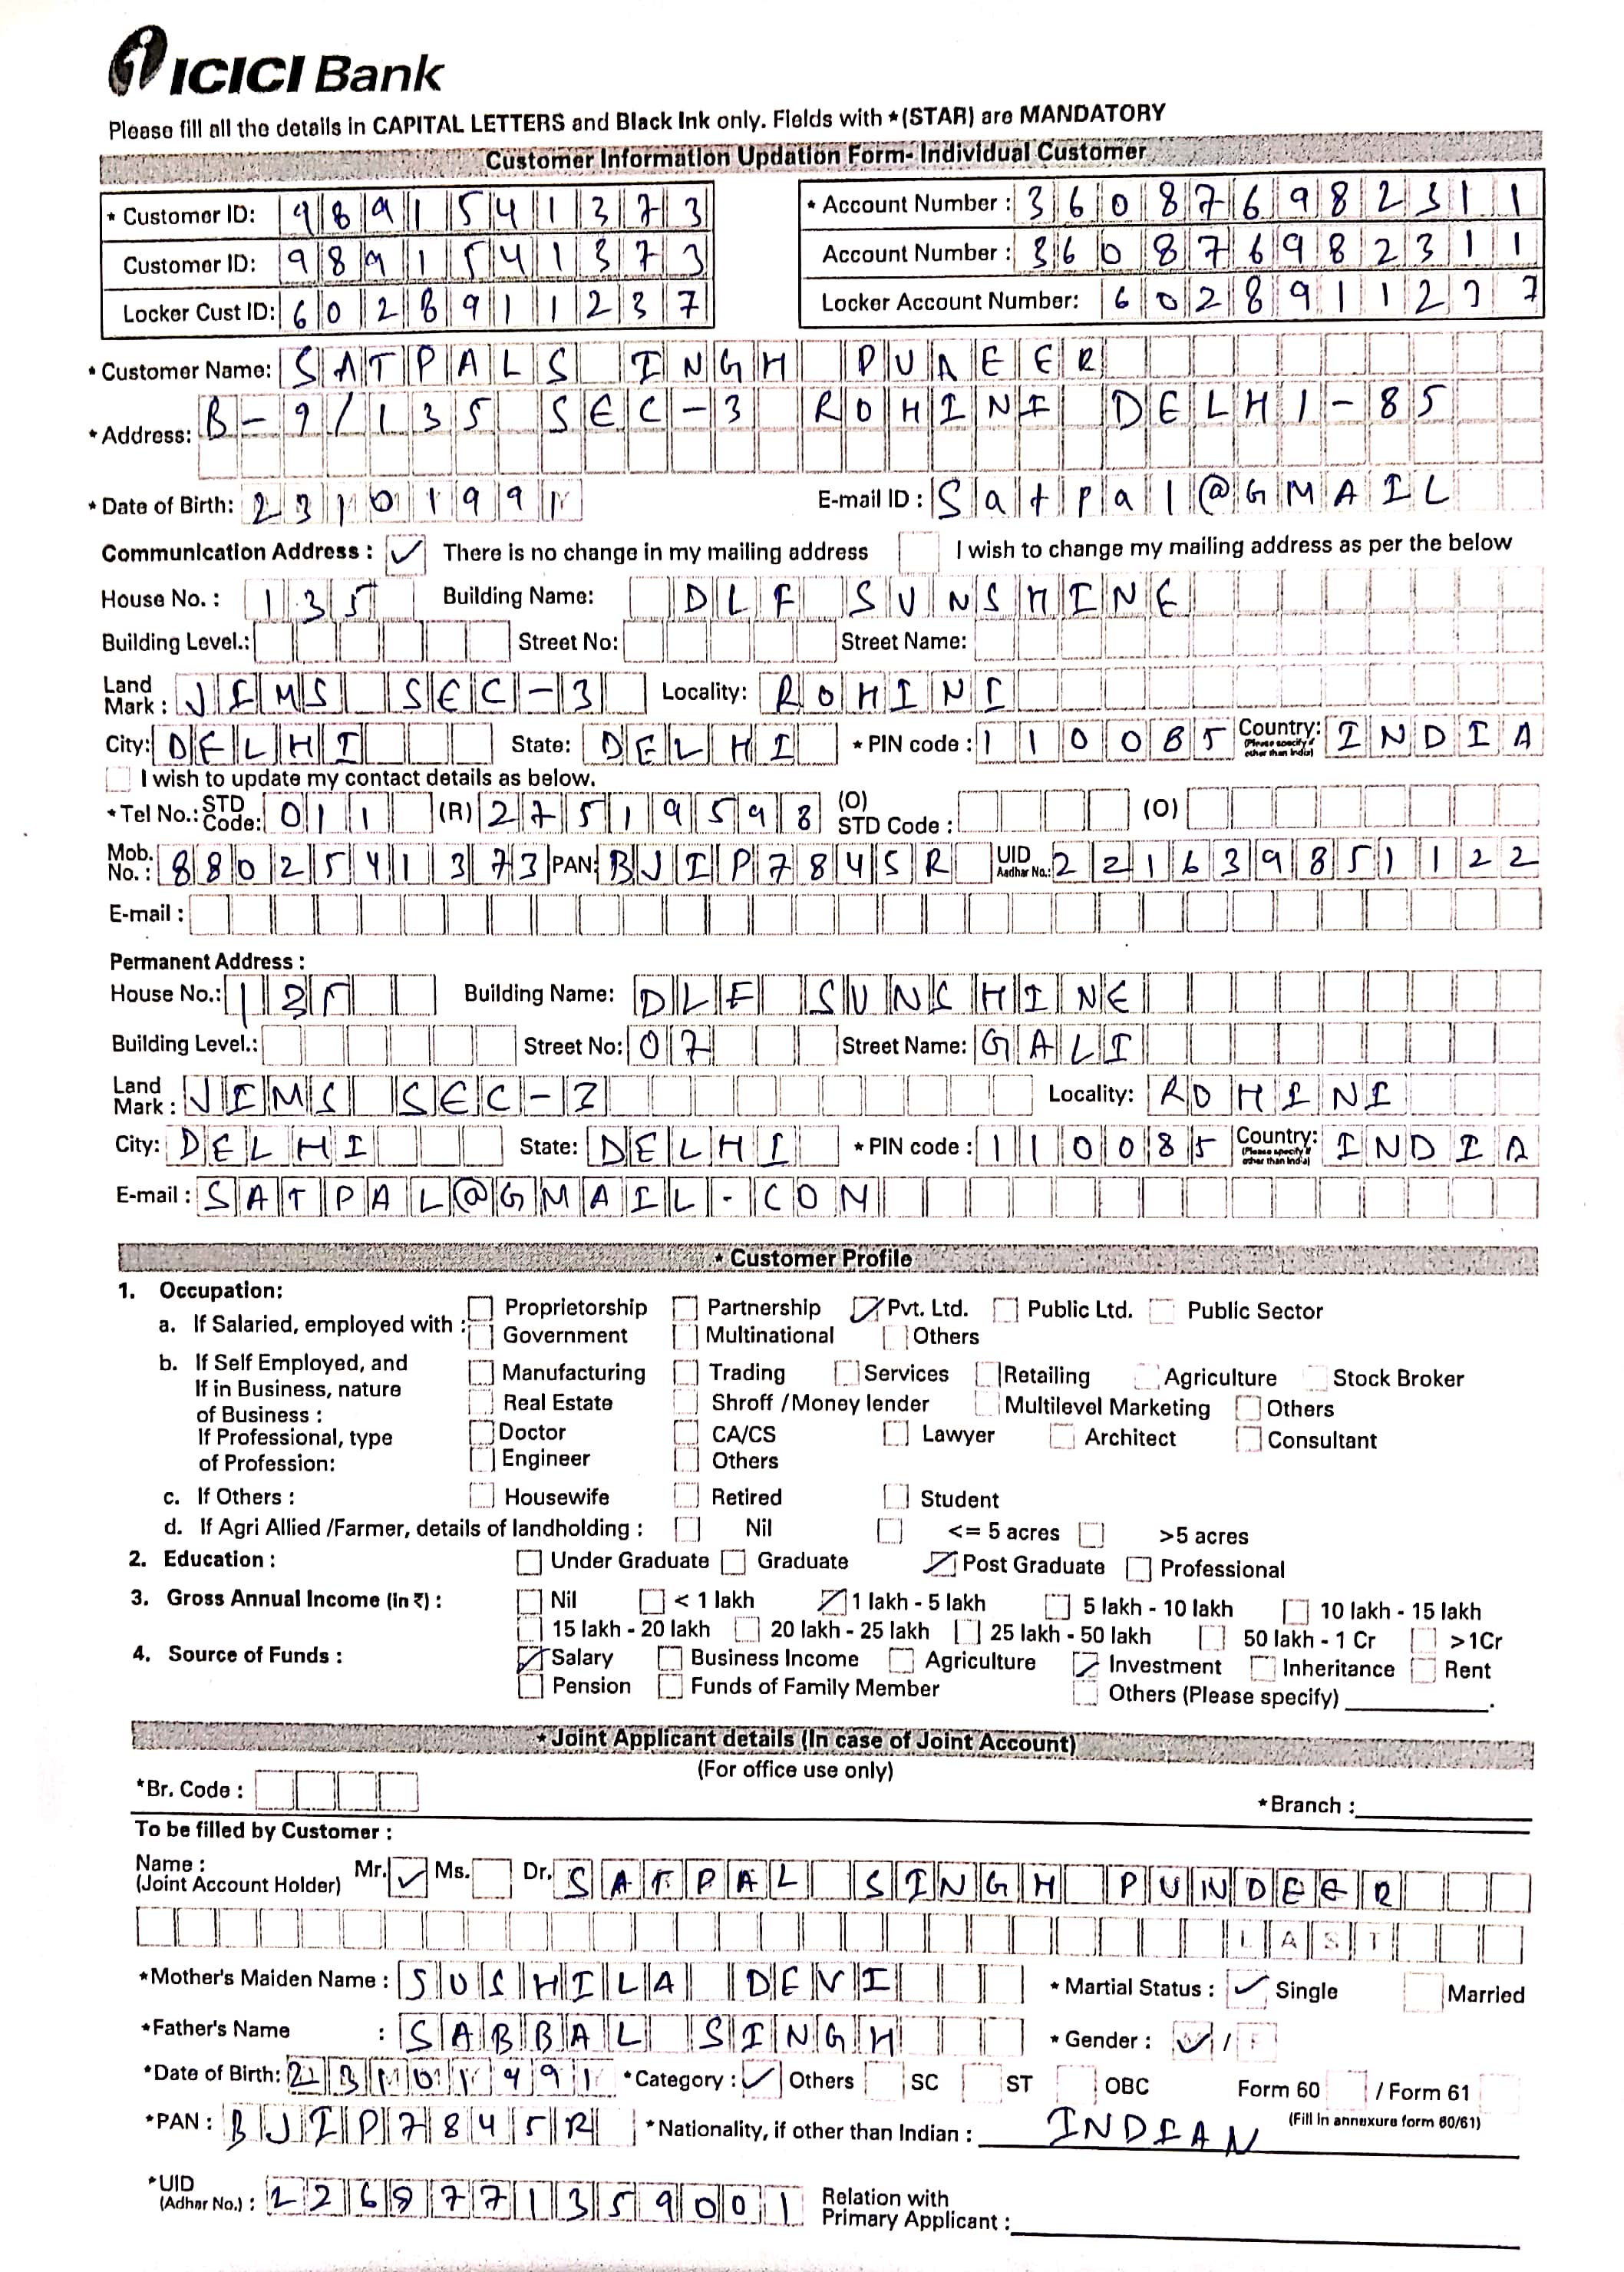 ICICI Bank
Please fill all the details in CAPITAL LETTERS and Black Ink only. Fields with *(STAR) are MANDATORY
Customer Information Updation Form- Individual Customer
* Customer ID: 9891541373 * Account Number : 360876982311
Customer ID: 9891541373 Account Number : 360876982311
Locker Cust ID: 6028911237 Locker Account Number: 6028911237
* Customer Name: SATPALS INGH PUNEER
* Address: B-9/135 SEC-3 ROHINI DELHI-85
* Date of Birth: 23101991 E-mail ID : Satpal@GMAIL
Communication Address : ✓ There is no change in my mailing address I wish to change my mailing address as per the below
House No. : 135 Building Name: DLF SUNSHINE
Building Level.: Street No: Street Name:
Land Mark : JIMS SEC-3 Locality: ROHINI
City: DELHI State: DELHI * PIN code : 110085 Country: (Please specify if other than India) INDIA
I wish to update my contact details as below.
*Tel No.: STD Code: 011 (R) 27519598 (O) STD Code : (O)
Mob. No. : 8802541373 PAN: BJIP7845R UID Aadhar No.: 221639851122
E-mail :
Permanent Address :
House No.: 135 Building Name: DLF SUNSHINE
Building Level.: Street No: 07 Street Name: GALI
Land Mark : JIMS SEC-3 Locality: ROHINI
City: DELHI State: DELHI * PIN code : 110085 Country: (Please specify if other than India) INDIA
E-mail : SATPAL@GMAIL.COM
* Customer Profile
1. Occupation:
a. If Salaried, employed with : Proprietorship Partnership ✓ Pvt. Ltd. Public Ltd. Public Sector
Government Multinational Others
b. If Self Employed, and If in Business, nature of Business : Manufacturing Trading Services Retailing Agriculture Stock Broker
Real Estate Shroff /Money lender Multilevel Marketing Others
If Professional, type of Profession: Doctor CA/CS Lawyer Architect Consultant
Engineer Others
c. If Others : Housewife Retired Student
d. If Agri Allied /Farmer, details of landholding : Nil <= 5 acres >5 acres
2. Education : Under Graduate Graduate ✓ Post Graduate Professional
3. Gross Annual Income (in ₹) : Nil < 1 lakh ✓ 1 lakh - 5 lakh 5 lakh - 10 lakh 10 lakh - 15 lakh
15 lakh - 20 lakh 20 lakh - 25 lakh 25 lakh - 50 lakh 50 lakh - 1 Cr >1Cr
4. Source of Funds : ✓ Salary Business Income Agriculture ✓ Investment Inheritance Rent
Pension Funds of Family Member Others (Please specify)
* Joint Applicant details (In case of Joint Account)
(For office use only)
*Br. Code : * Branch :
To be filled by Customer :
Name : (Joint Account Holder) Mr. ✓ Ms. Dr. SATPAL SINGH PUNDEER
LAST
*Mother's Maiden Name : SUSHILA DEVI * Martial Status : ✓ Single Married
*Father's Name : SABBAL SINGH * Gender : M ✓ / F
*Date of Birth: 23101991 *Category : ✓ Others SC ST OBC Form 60 / Form 61
*PAN : BJIP7845R *Nationality, if other than Indian : INDIAN (Fill In annexure form 60/61)
*UID (Adhar No.) : 2268771359001 Relation with Primary Applicant :